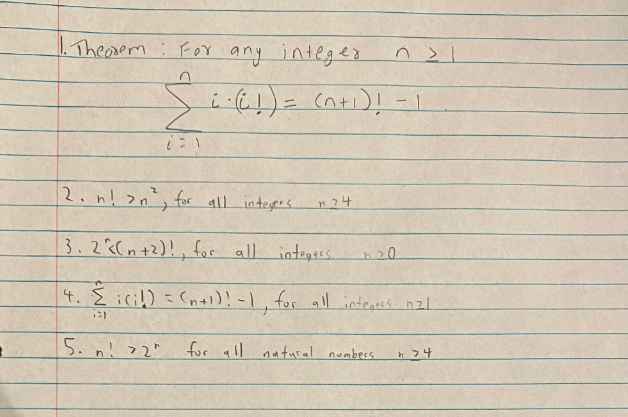 1. Theorem : For any integer n ≥ 1
n
∑ i·(i!) = (n+1)! - 1
i=1
2. n! > n², for all integers n ≥ 4
3. 2ⁿ<(n+2)!, for all integers n ≥ 0
4. ∑ⁿᵢ₌₁ i(i!) = (n+1)! - 1, for all integers n ≥ 1
5. n! > 2ⁿ for all natural numbers n ≥ 4